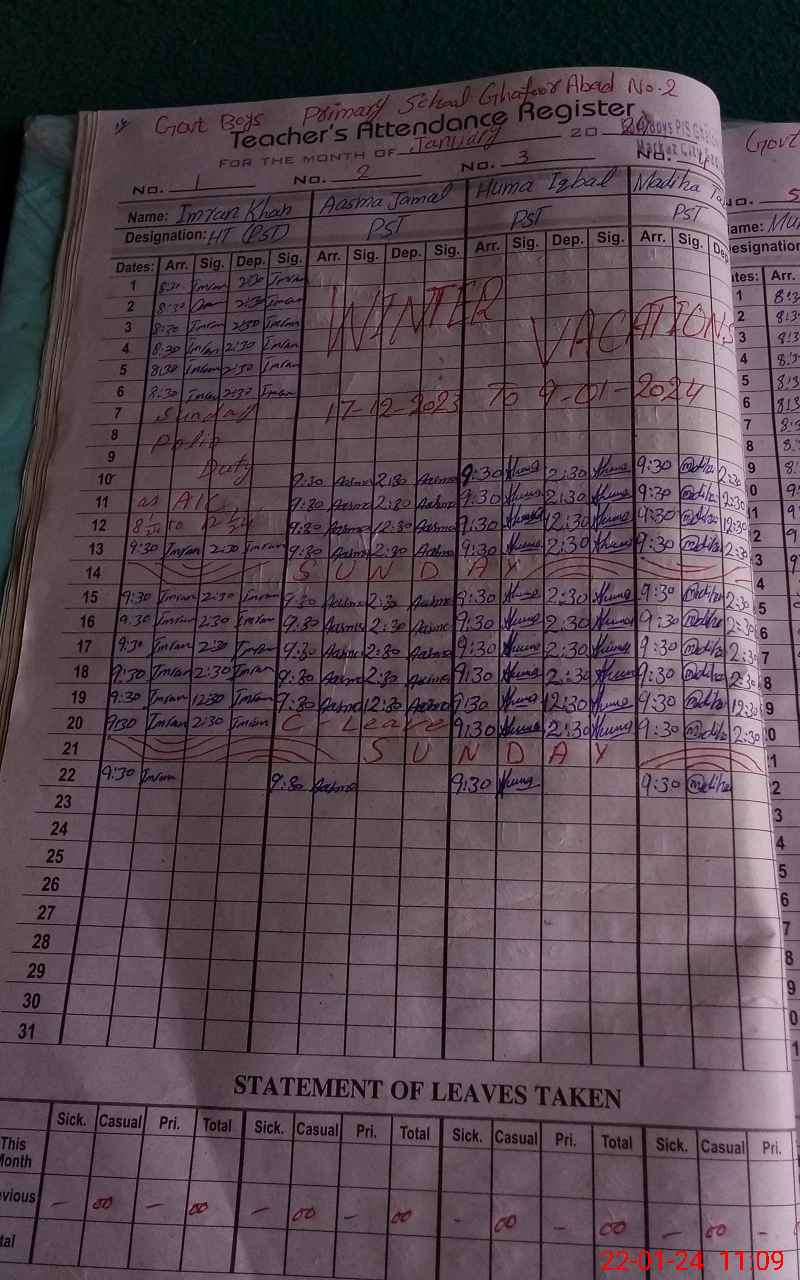 Govt Boys Primary School Ghafoor Abad No.2
Teacher's Attendance Register
FOR THE MONTH OF January 20
No. 1 No. 2 No. 3 No. 4
Name: Imran Khan Aasma Jamal Huma Iqbal Madiha
Designation: HT (PST) PST PST PST
Dates: Arr. Sig. Dep. Sig. Arr. Sig. Dep. Sig. Arr. Sig. Dep. Sig. Arr. Sig. Dep
1 8:30 Imran 2:30 Imran
2 8:30 2:30 Imran
3 8:30 Imran 2:30 Imran
4 8:30 Imran 2:30 Imran
5 8:30 Imran 2:30 Imran
6 8:30 Imran 2:30 Imran
WINTER VACATIONS
7 Sunday 17-12-2023 To 9-01-2024
8 Polio
9 Duty
10 9:30 Aasma 2:30 Aasma 9:30 Huma 2:30 Huma 9:30 Madiha 2:30
11 as AIC 9:30 Aasma 2:30 Aasma 9:30 Huma 2:30 Huma 9:30 Madiha 2:30
12 8/1/24 to 12/1/24 9:30 Aasma 12:30 Aasma 9:30 Huma 12:30 Huma 9:30 Madiha 12:30
13 9:30 Imran 2:30 Imran 9:30 Aasma 2:30 Aasma 9:30 Huma 2:30 Huma 9:30 Madiha 2:30
14 SUNDAY
15 9:30 Imran 2:30 Imran 9:30 Aasma 2:30 Aasma 9:30 Huma 2:30 Huma 9:30 Madiha 2:30
16 9:30 Imran 2:30 Imran 9:30 Aasma 2:30 Aasma 9:30 Huma 2:30 Huma 9:30 Madiha 2:30
17 9:30 Imran 2:30 Imran 9:30 Aasma 2:30 Aasma 9:30 Huma 2:30 Huma 9:30 Madiha 2:30
18 9:30 Imran 2:30 Imran 9:30 Aasma 2:30 Aasma 9:30 Huma 2:30 Huma 9:30 Madiha 2:30
19 9:30 Imran 12:30 Imran 9:30 Aasma 12:30 Aasma 9:30 Huma 12:30 Huma 9:30 Madiha 12:30
20 9:30 Imran 2:30 Imran C-Leave 9:30 Huma 2:30 Huma 9:30 Madiha 2:30
21 SUNDAY
22 9:30 Imran 9:30 Aasma 9:30 Huma 9:30 Madiha
23
24
25
26
27
28
29
30
31
STATEMENT OF LEAVES TAKEN
Sick. Casual Pri. Total Sick. Casual Pri. Total Sick. Casual Pri. Total Sick. Casual Pri.
This Month
vious - 00 - 00 - 00 - 00 - 00 - 00 - 00 -
tal
22-01-24 11:09